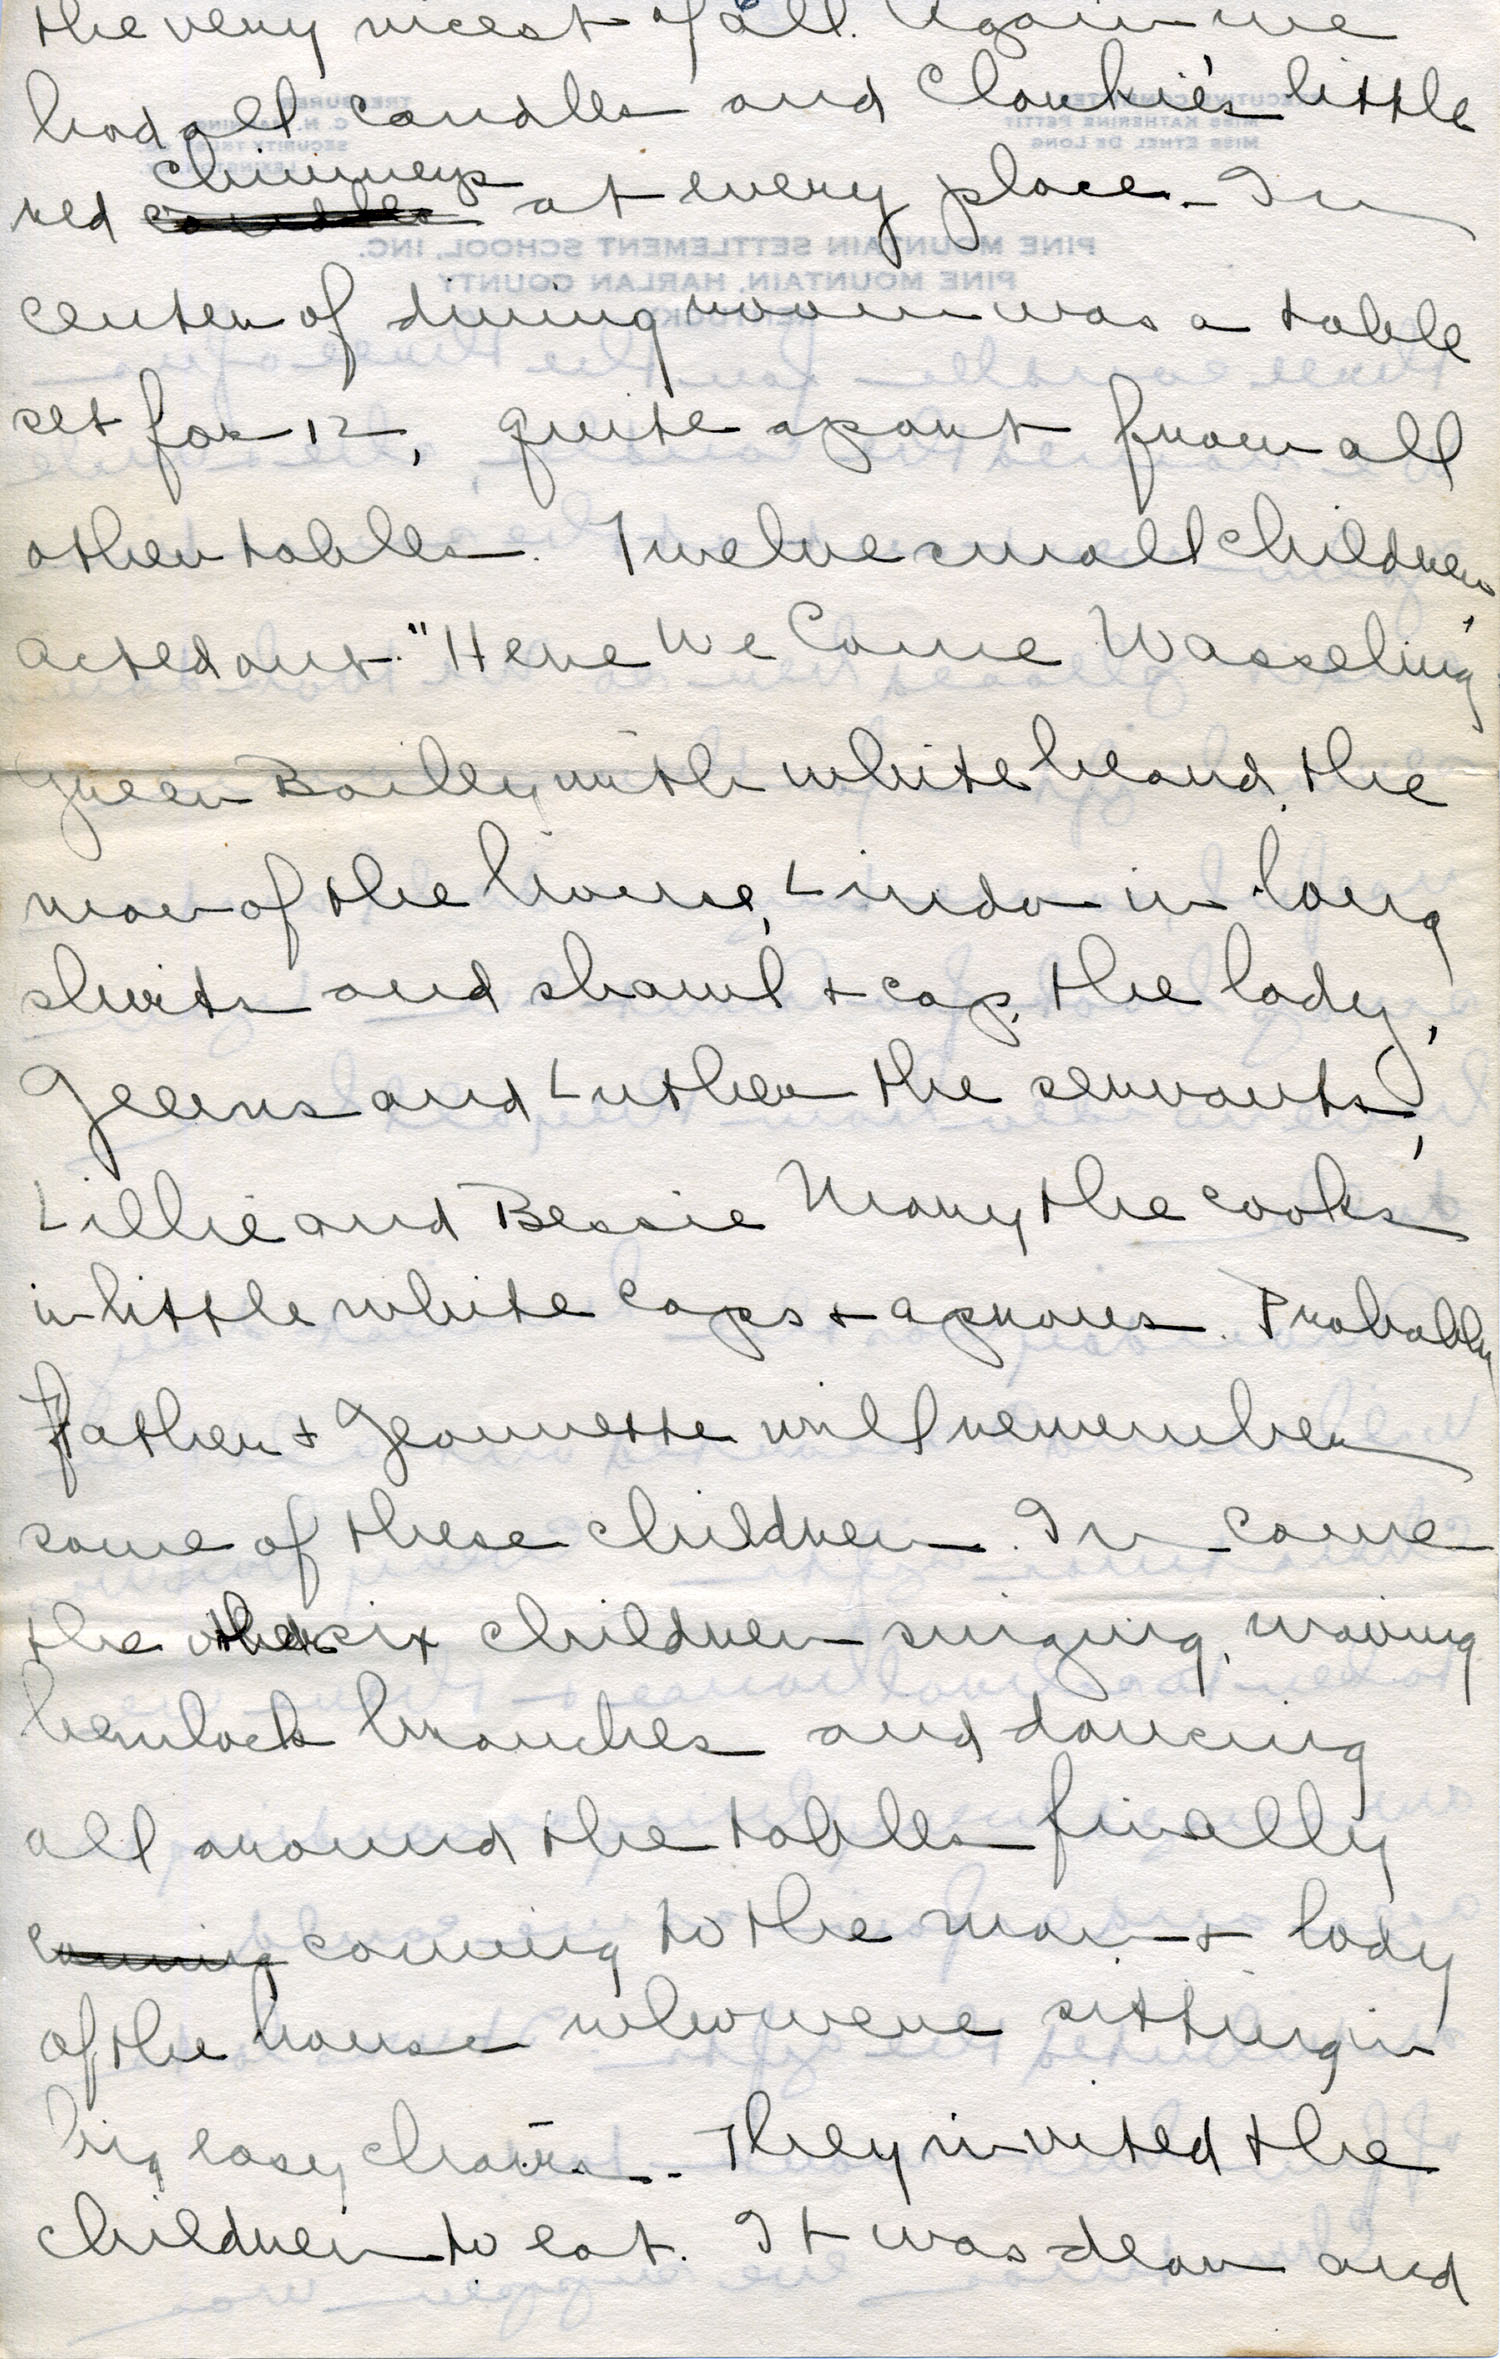 the very nicest of all. Again we
had all candles and Clarkie's little
red candles chimneys at every place. In
center of dining room was a table
set for 12, quite apart from all
other tables. Twelve small children,
acted out "Here We Come Wasseling"
Green Bailey with white beard, the
man of the house, Linda in long
skirts and shawl & cap, the lady,
Geems and Luther the servants,
Lillie and Bessie Mary the cooks
in little white caps & aprons. Probably
Father & Jeannette will remember
some of these children. In came
the other six children singing, waving
hemlock branches and dancing
all around the tables finally
coming coming to the man & lady
of the house who were sitting in
big easy chairs. They invited the
children to eat. It was dear and
EXECUTIVE COMMITTEE
MISS KATHERINE PETTIT
MISS ETHEL DE LONG
TREASURER
C. N. MANNING
SECURITY TRUST CO.
LEXINGTON, KY
PINE MOUNTAIN SETTLEMENT SCHOOL, INC.
PINE MOUNTAIN, HARLAN COUNTY